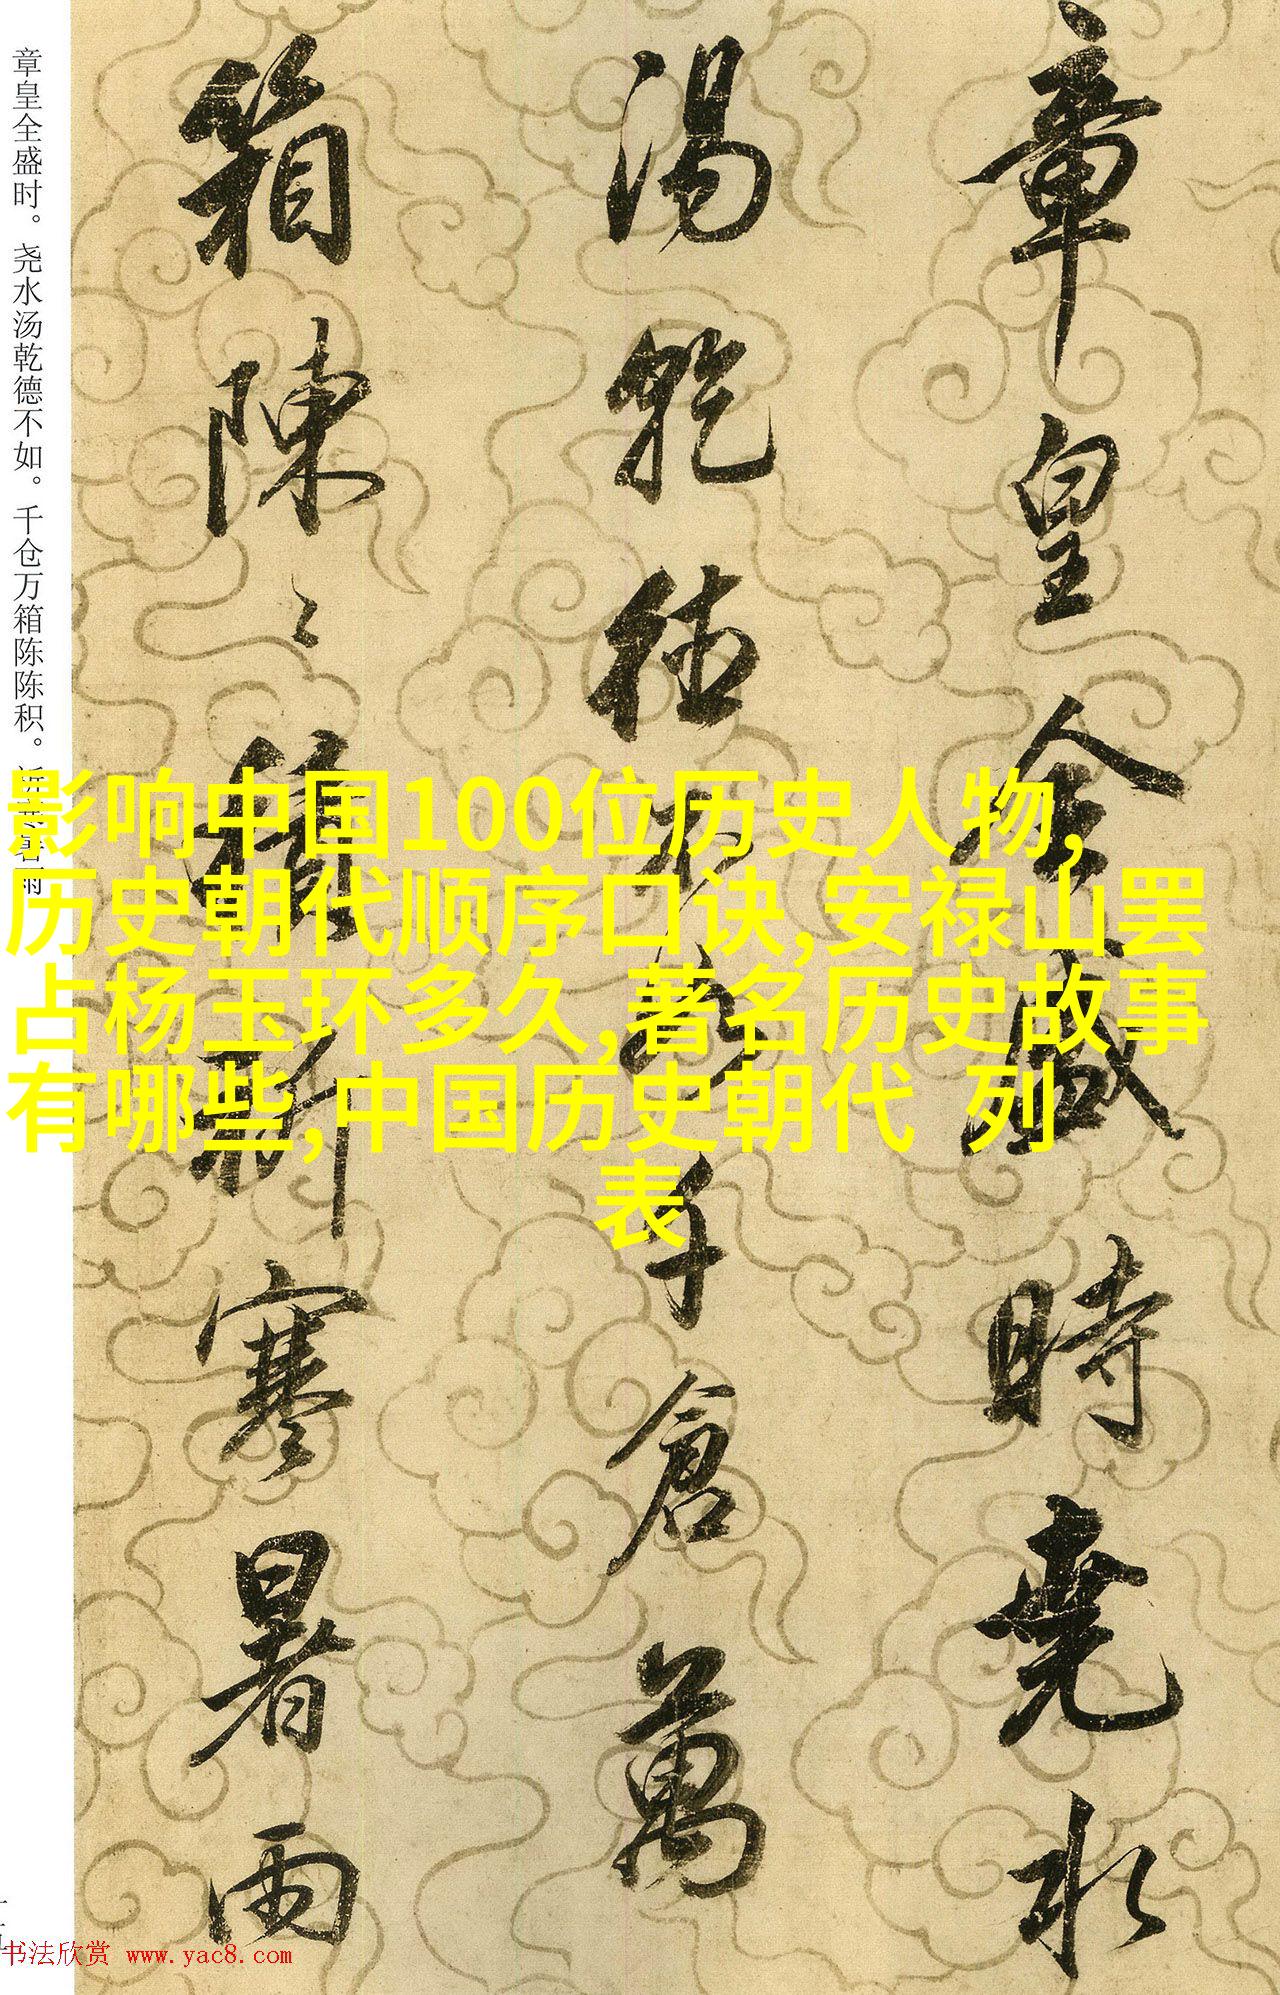 章皇全盛時堯水
湯乾德不如千倉萬
箱陳〻積寒暑雨
章皇全盛时。尧水汤乾德不如。千仓万箱陈陈积。
影响中国100位历史人物,
历史朝代顺序口诀,安禄山罢
占杨玉环多久,著名历史故事
有哪些,中国历史朝代 列
表
书法欣赏 www.yac8.com